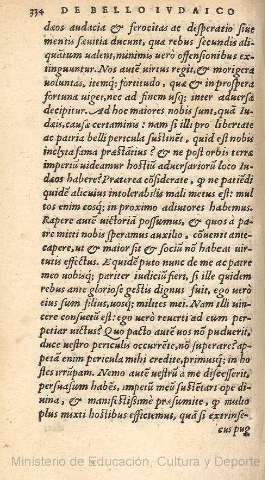 334 DE BELLO IVDAICO
dæos audacia & ferocitas ac desperatio siue
mentis sæuitia ducunt, qua rebus secundis ali-
quātum ualent, minimis uerò offensionibus ex-
tinguuntur. Nos autē uirtus regit, & morigera
uoluntas, itemq; fortitudo, quæ & in prospera
fortuna uiget, nec ad finem usq; inter aduersa
decipitur. Ad hoc maiores nobis sunt, quā Iu-
dæis, causæ certaminis: nam si illi pro libertate
ac patria belli periculum sustinēt, quid est nobis
inclyta fama præstātius? & ne post orbis terræ
imperiū uideamur hostiū aduersariorū loco Iu-
dæos habere? Præterea cōsiderate, q̃ ne patiēdi
quidē alicuius intolerabilis mali metus est: mul
tos enim eosq; in proximo adiutores habemus.
Rapere autē uictoriā possumus, & quos à pa-
tre mitti nobis speramus auxilio, cōuenit ante-
capere, ut & maior sit & sociū nō habeat uir-
tutis effectus. Equidē puto nunc de me ac patre
meo uobisq; pariter iudiciū fieri, si ille quidem
rebus ante gloriose gestis dignus fuit, ego uerò
eius sum filius, uosq; milites mei. Nam illi uin-
cere consuetū est: ego uerò reuerti ad eum per-
petiar uictus? Quo pacto autē uos nō puduerit,
duce uestro periculis occurrēte, nō superare? ap-
petā enim pericula mihi credite, primusq; in ho-
stes irrūpam. Nemo autē uestrū à me discesserit,
persuasum habēs, impetū meū sustētari ope di-
uina, & manifestissimè præsumite, q̃ multo
plus mixti hostibus efficiemus, quā si extrinse-
cus pug
Ministerio de Educación, Cultura y Deporte